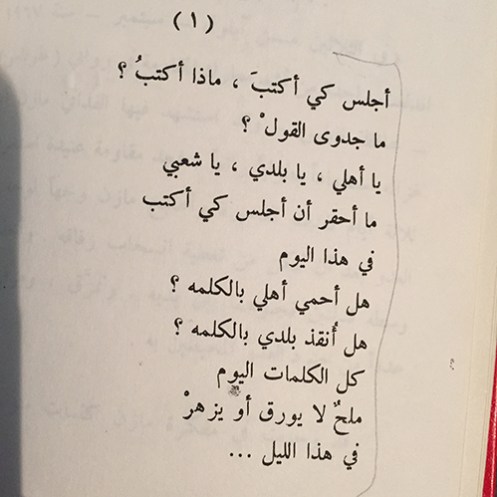 (١)
أجلس كي أكتبَ ، ماذا أكتبُ ؟
ما جدوى القولْ ؟
يا أهلي ، يا بلدي ، يا شعبي
ما أحقر أن أجلس كي أكتب
في هذا اليوم
هل أحمي أهلي بالكلمه ؟
هل أُنقذ بلدي بالكلمه ؟
كل الكلمات اليوم
ملحٌ لا يورق أو يزهرْ
في هذا الليل ...